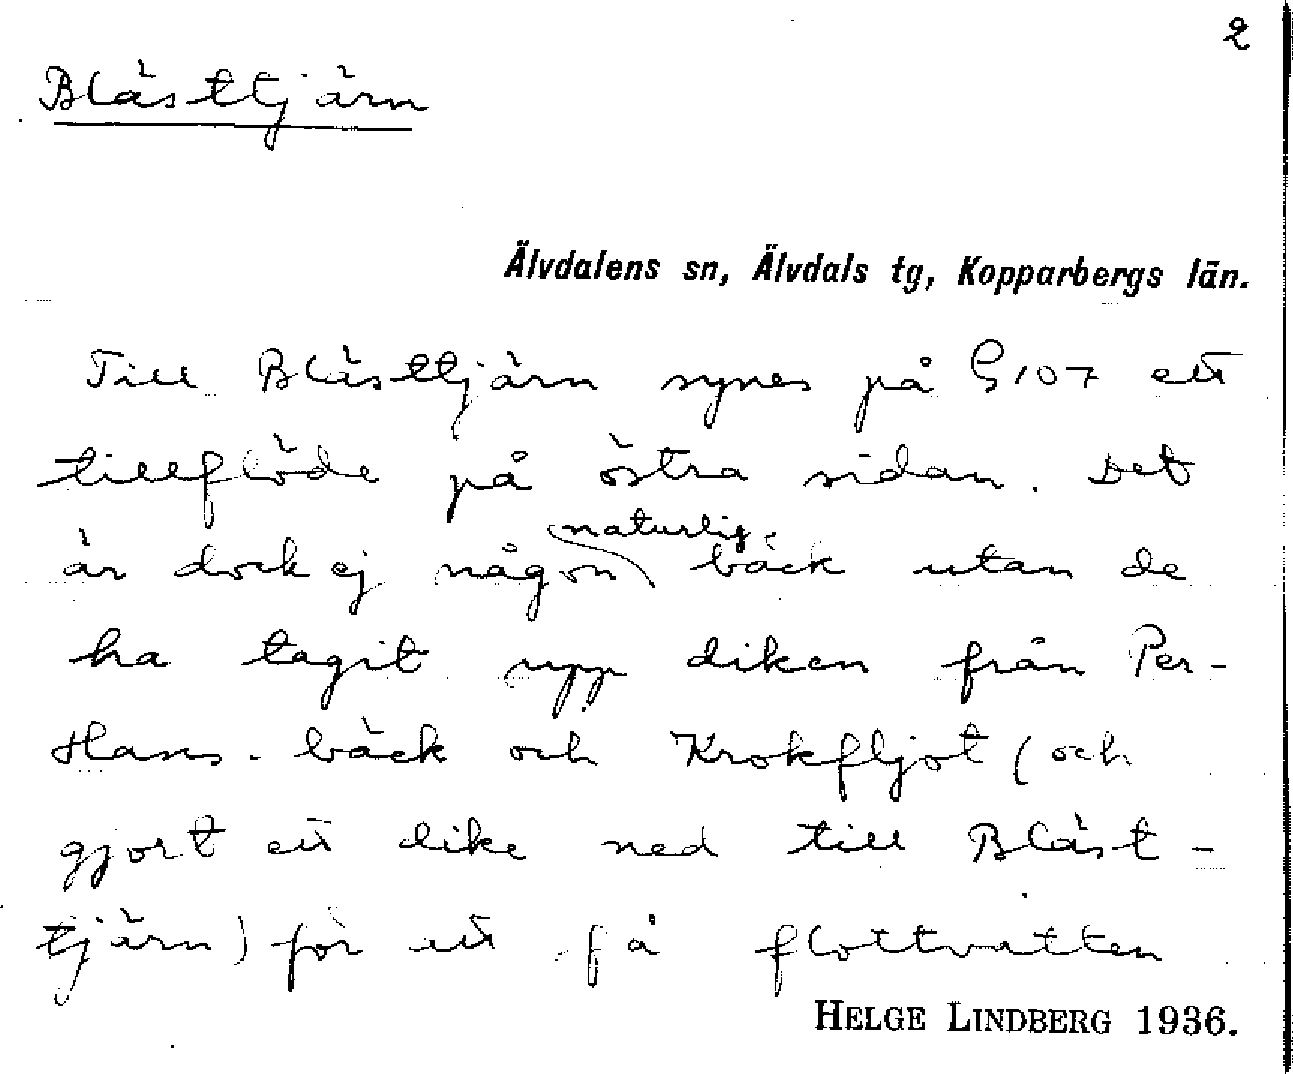 2
Blästtjärn
Älvdalens sn, Älvdals tg, Kopparbergs län.
Till Blästtjärn synes på G107 ett
tillflöde på östra sidan. Det
naturlig
är dock ej någon bäck utan de
ha tagit upp diken från Per-
Hans-bäck och Krokfljot (och
gjort ett dike ned till Bläst-
tjärn) för att få flottvatten
HELGE LINDBERG 1936.